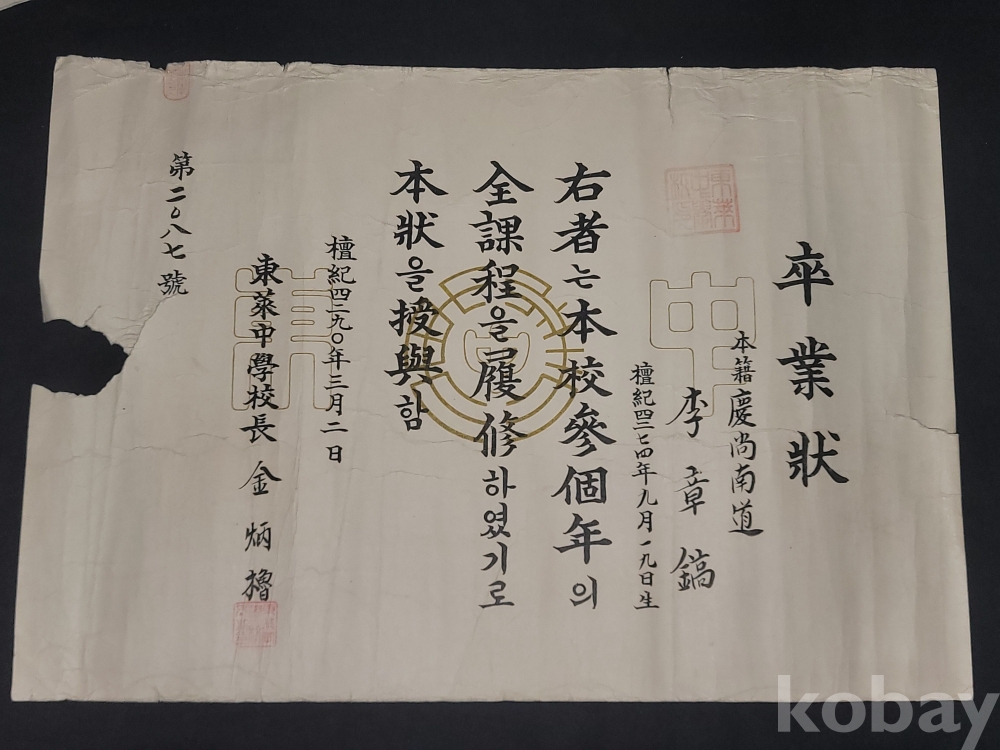 卒業狀
本籍慶尚南道
李章鎬
檀紀四二七四年九月一九日生
右者는本校參個年의
全課程을履修하였기로
本狀을授與함
檀紀四二九〇年三月二日
東萊中學校長 金炳
第二〇八七號
kobay